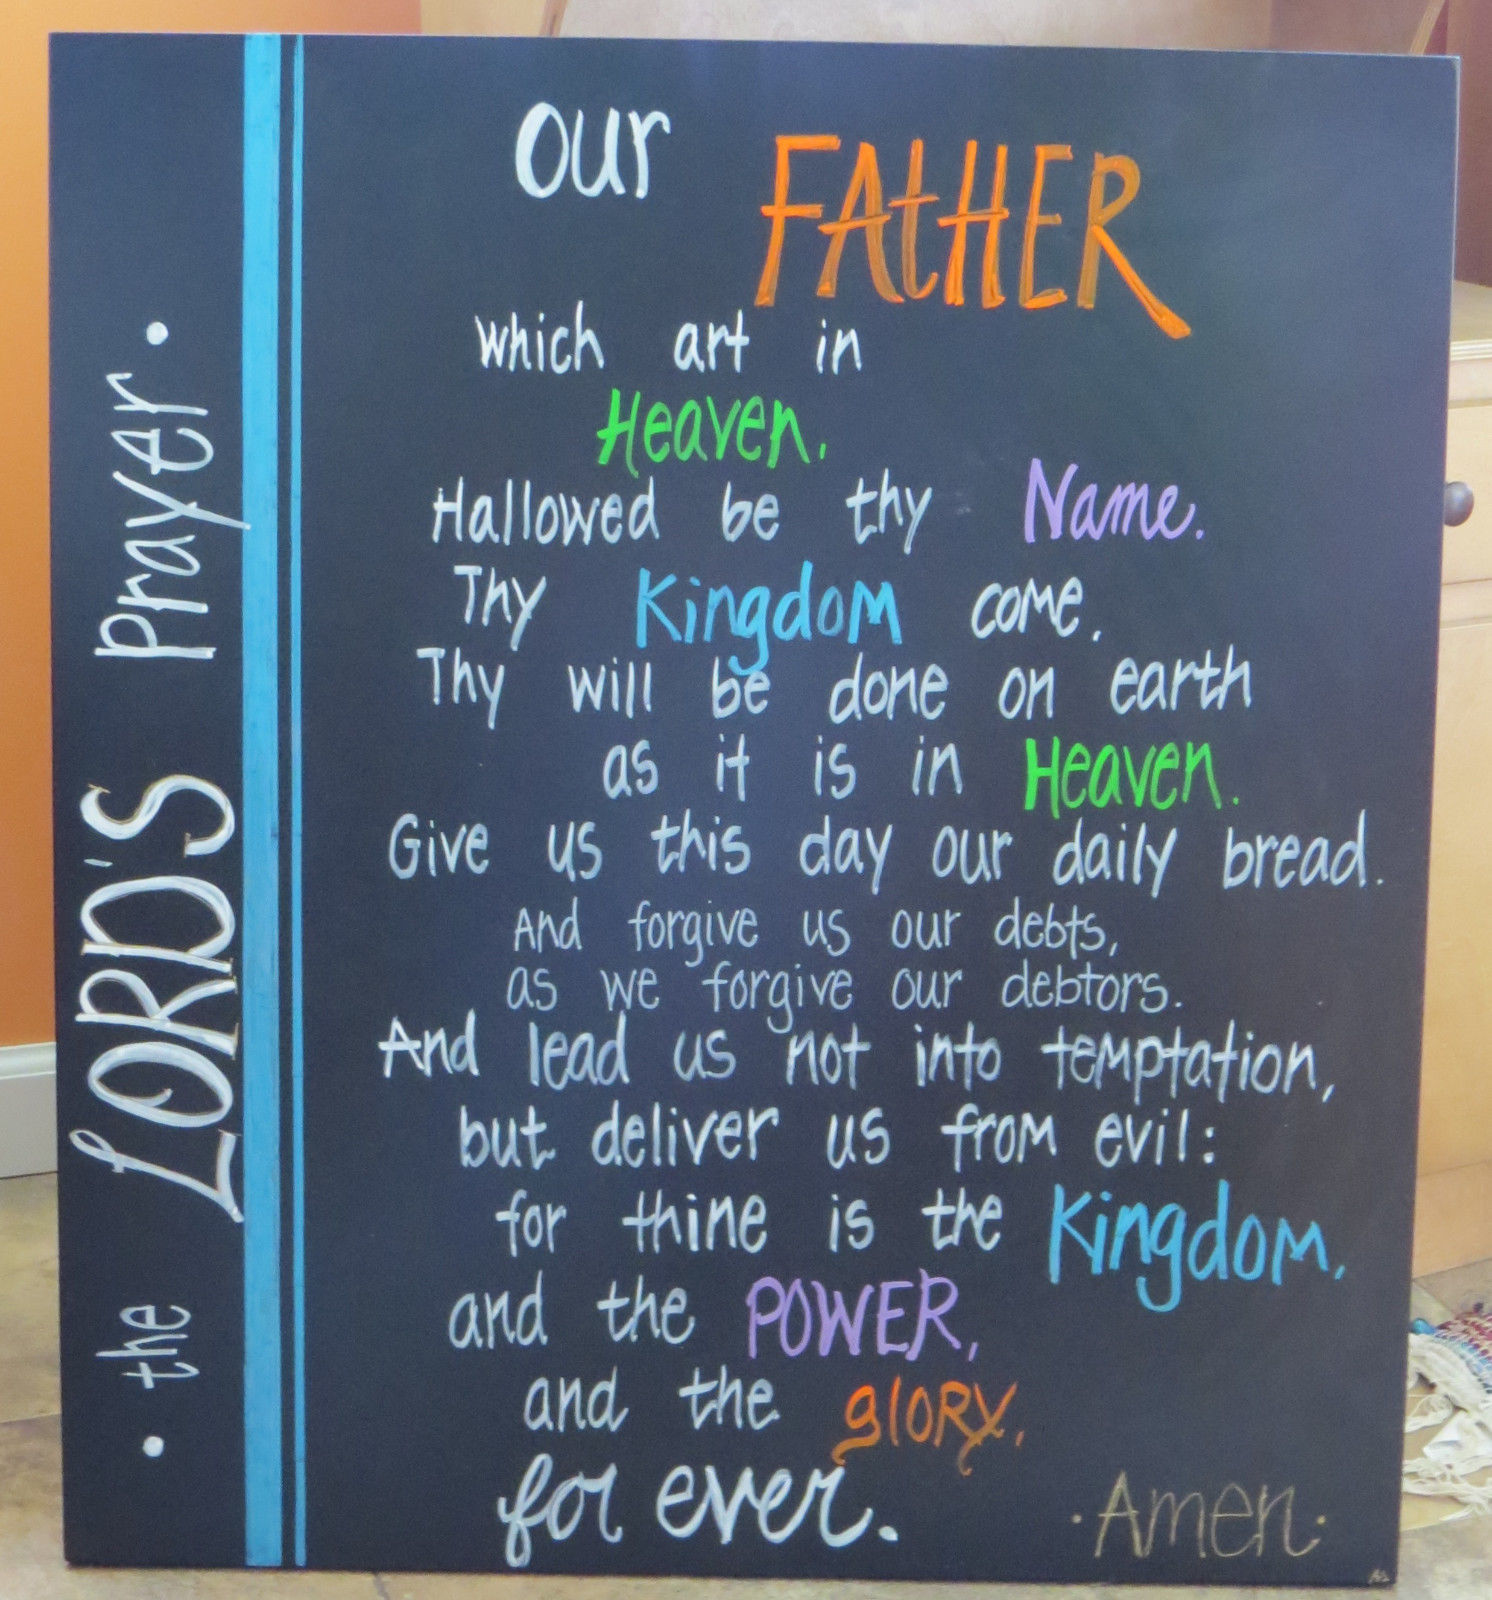 • the LORD'S Prayer •
Our FAtHER
which art in
Heaven.
Hallowed be thy Name.
Thy Kingdom come.
Thy will be done on earth
as it is in Heaven.
Give us this day our daily bread.
And forgive us our debts,
as we forgive our debtors.
And lead us not into temptation,
but deliver us from evil:
for thine is the Kingdom,
and the POWER,
and the glory,
for ever.
• Amen •